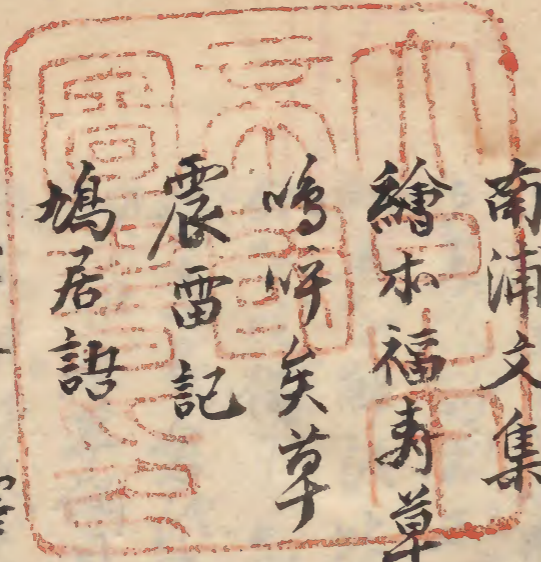 南浦文集
繪本福寿草
嗚呼矣草
震雷記
鳩居語